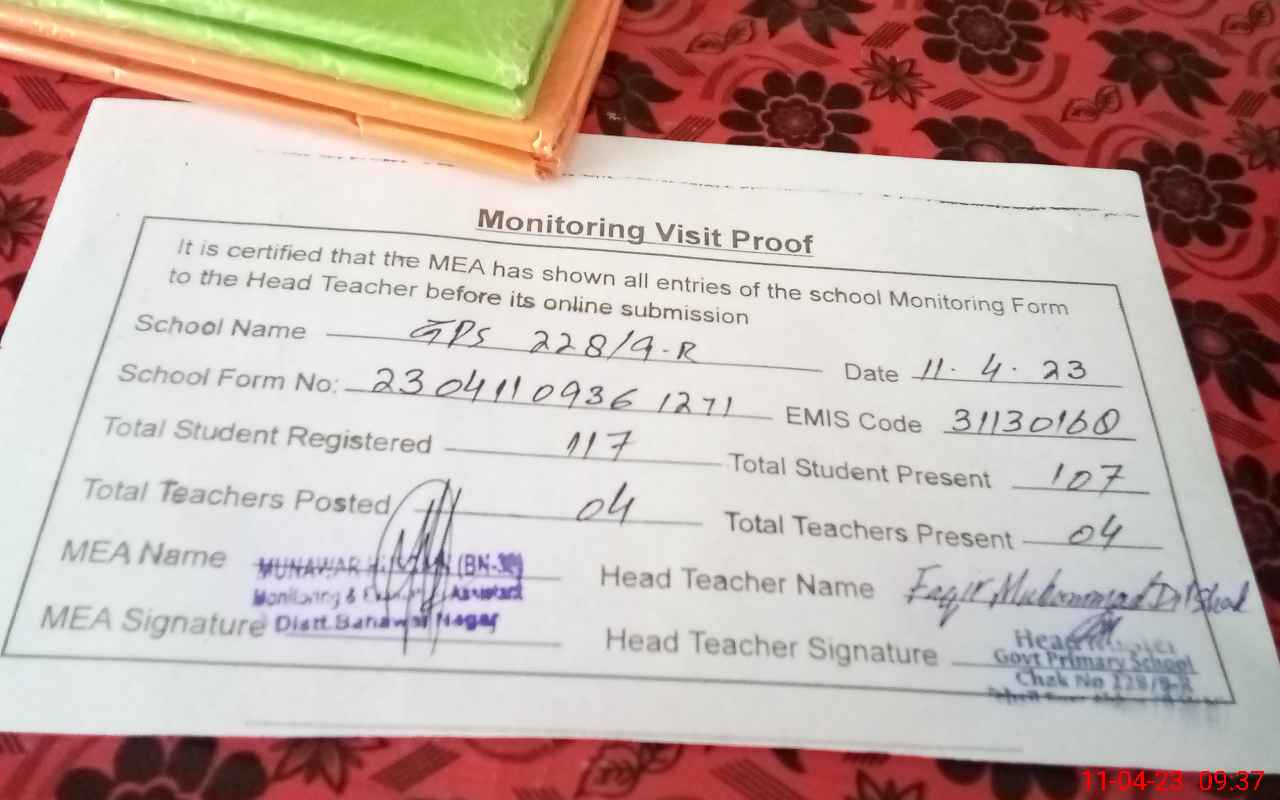 Monitoring Visit Proof
It is certified that the MEA has shown all entries of the school Monitoring Form
to the Head Teacher before its online submission
School Name GPS 228/9-R
Date 11. 4. 23
School Form No: 2304110936 1271
EMIS Code 31130160
Total Student Registered 117
Total Student Present 107
Total Teachers Posted 04
Total Teachers Present 04
MEA Name MUNAWAR
Monitoring & Assistant
Head Teacher Name Faqir Muhammad
MEA Signature Distt. Bahawal Nagar
Head Teacher Signature Head
Govt Primary School
Chak No 228/9-R
11-04-23 09:37